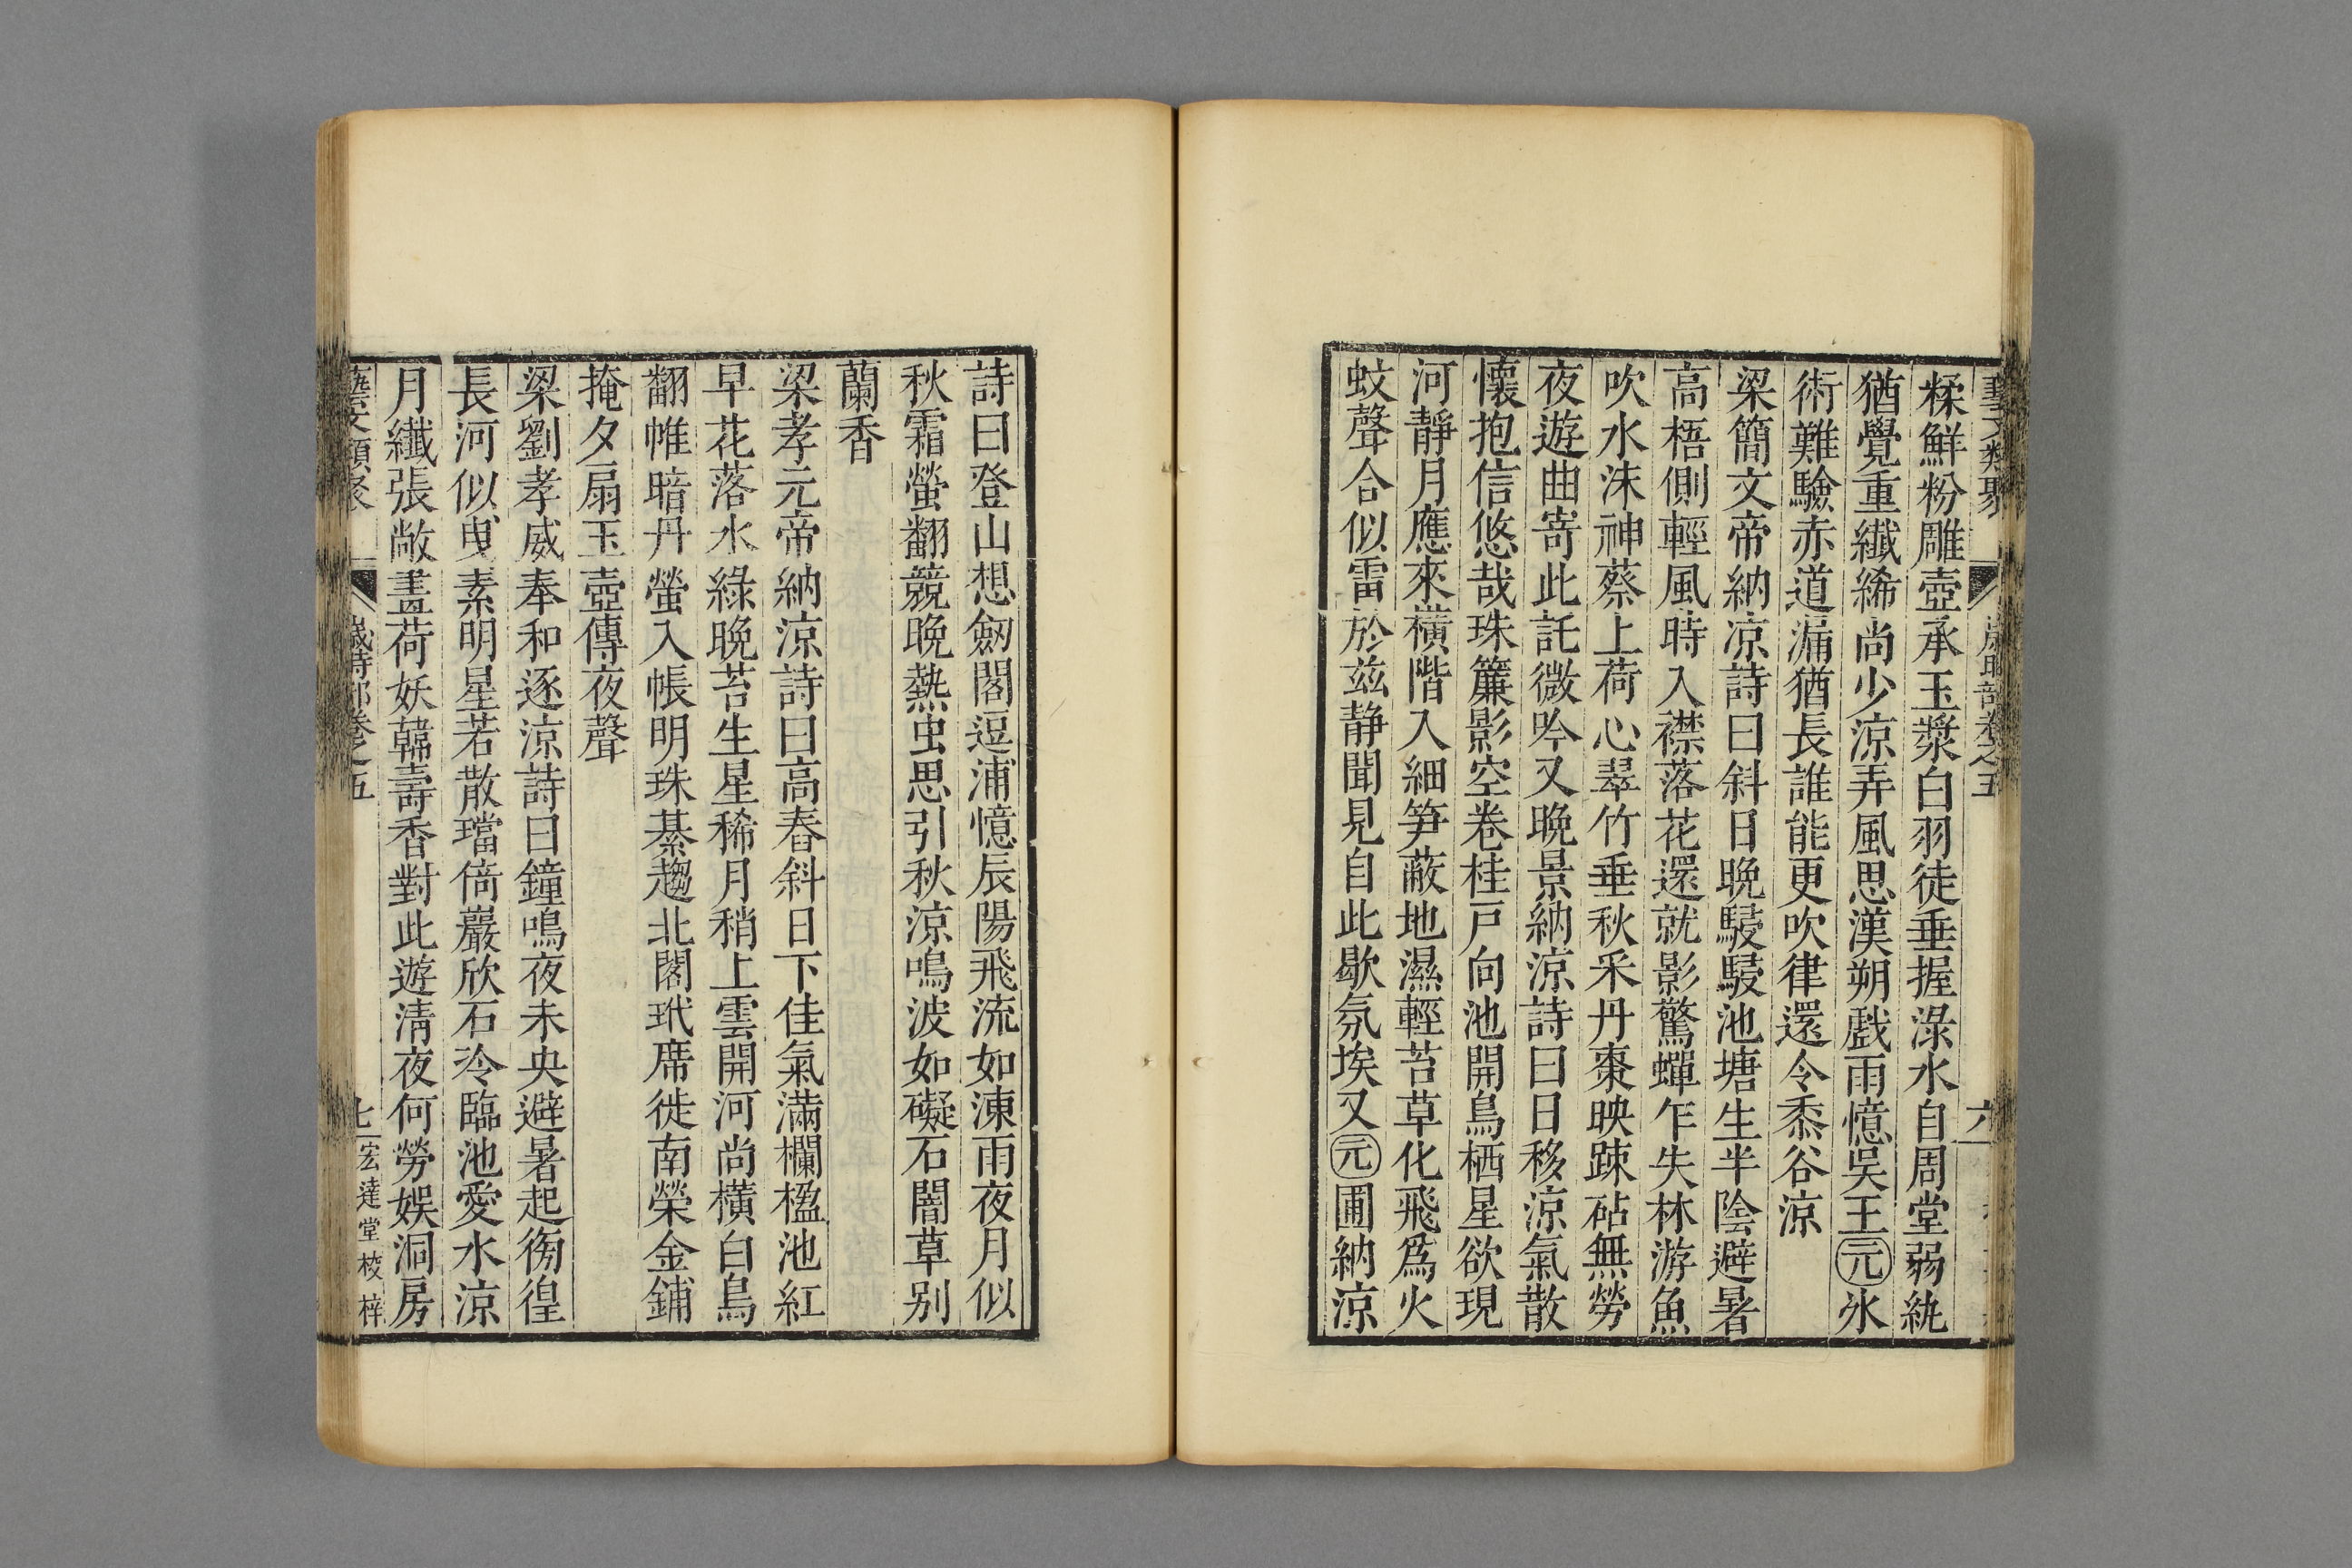 藝文類聚 歲時部卷之五 六
糅鮮粉雕壺承玉漿白羽徒垂握淥水自周堂弱紈
猶覺重纖絺尚少涼弄風思漢朔戲雨憶吳王元氷
術難驗赤道漏猶長誰能更吹律還令黍谷涼
梁簡文帝納凉詩曰斜日晚駸駸池塘生半陰避暑
高梧側輕風時入襟落花還就影驚蟬乍失林游魚
吹水沫神蔡上荷心翠竹垂秋采丹棗映踈砧無勞
夜遊曲寄此託微吟又晚景納涼詩曰日移涼氣散
懷抱信悠哉珠簾影空卷桂戸向池開鳥栖星欲現
河靜月應來橫階入細笋蔽地濕輕苔草化飛爲火
蚊聲合似雷於茲静聞見自此歇氛埃又元圃納涼
詩曰登山想劔閣逗浦憶辰陽飛流如凍雨夜月似
秋霜螢翻競晚熱虫思引秋涼鳴波如礙石闇草别
蘭香
梁孝元帝納涼詩曰高春斜日下佳氣滿欄楹池紅
早花落水綠晚苔生星稀月稍上雲開河尚橫白鳥
翻帷暗丹螢入帳明珠綦趨北閣玳席徙南榮金鋪
掩夕扇玉壺傳夜聲
梁劉孝威奉和逐涼詩曰鐘鳴夜未央避暑起徬徨
長河似曳素明星若散璫倚巖欣石冷臨池愛水涼
月纖張敞畫荷妖韓壽香對此遊清夜何勞娛洞房
藝文類聚 歲時部卷之五 七 宏達堂校梓